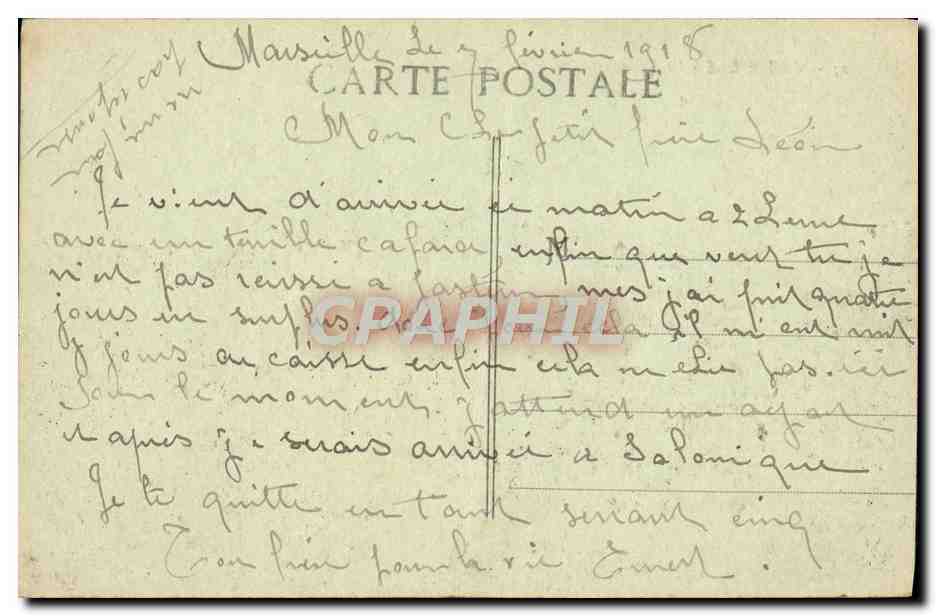 Marseille Le 7 février 1918
CARTE POSTALE
Mon Cher petit frère Léon
Je vient d'arrivée ici matin a 2 heure
avec un terrible cafard enfin que veut tu je
n'est pas reussi a mes j'ai fait quatre
jours en surplus. avec cela il m'ent mit
7 jours de caisse enfin cela ne pas. ici
Pour le moment j'attend un
et après je serais arrivée a Salonique
Je te quitte en tant serrant cinq
Ton frère pour la vie Ernest.
CPAPHIL